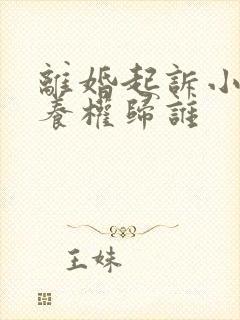 離婚起訴小
養權歸誰
王妹